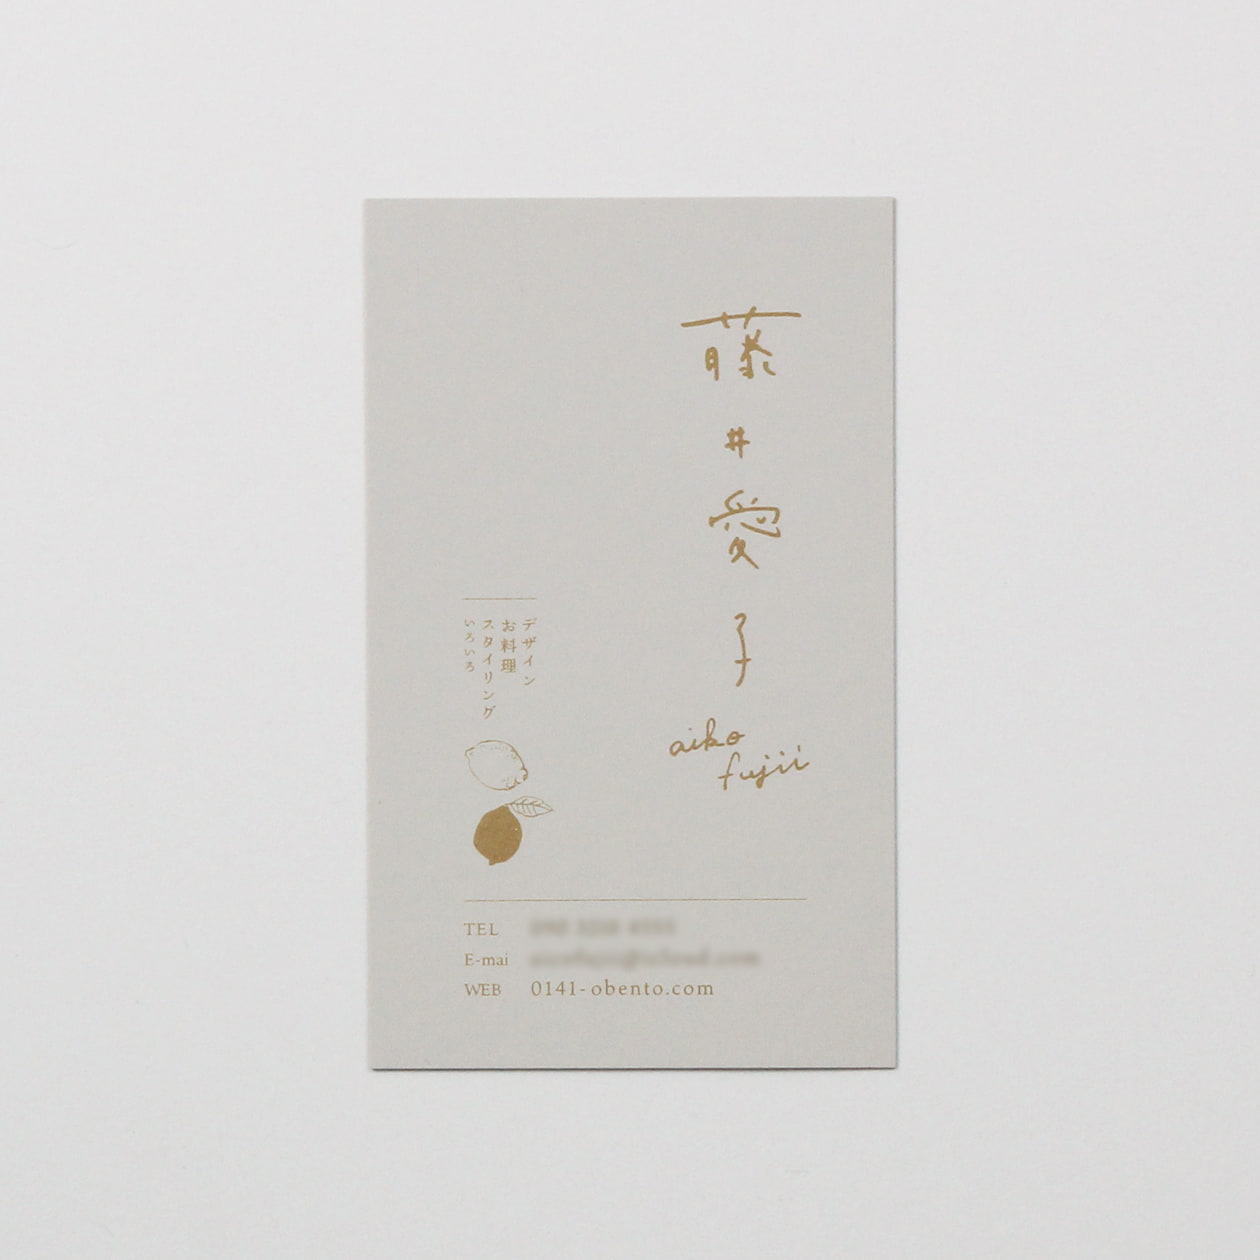 藤井愛子
aiko
fujii
デザイン
お料理
スタイリング
いろいろ
TEL
E-mai
WEB 0141-obento.com